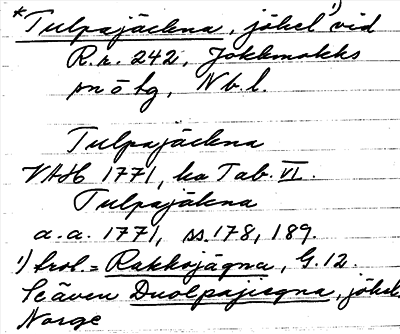 *Tulpajäckna, jökel 1) vid
R.r. 242, Jokkmokks
sn o tg, Nb.l.
Tulpajäckna
VAH 1771, ka Tab. VI.
Tulpajäkna
a.a. 1771, ss. 178, 189.
1) trol. = Rakkojägna, G.12.
Se även Duolpajiegna, jökel
Norge